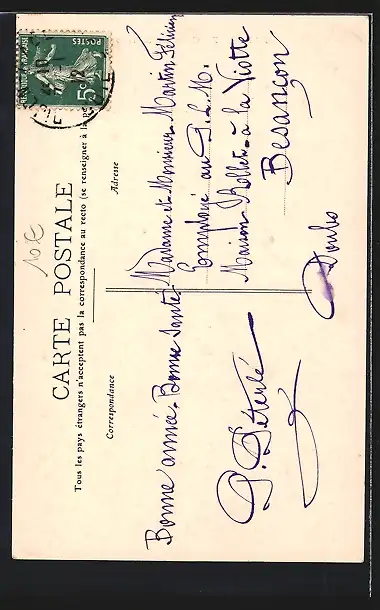 CARTE POSTALE
Tous les pays étrangers n'acceptent pas la correspondance au recto (se renseigner à la
Correspondance
Adresse
10 €
POSTES
5c
Bonne année. Bonne Santé.
P. Péterlé
Madame et Monsieur Martin Félicien
Employé au P.L.M.
Maison Rollet à la Viotte
Besançon
Doubs